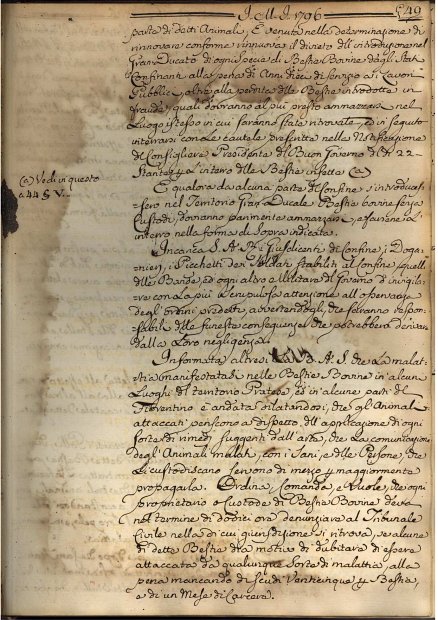 I. M. I. 1796
549
parte di detti Animali, È venuta nella determinazione di
rinnovare conforme rinnuova il divieto dell'introduzione nel
Gran-Ducato di ogni specie di Bestie Bovine dagli Stati
Confinanti alla pena di Anni dieci di servizio ai Lavori
Pubblici, oltre alla perdita delle Bestie introdotte in
fraude, quali dovranno al più presto ammazzarsi nel
Luogo istesso in cui saranno state ritrovate, ed in seguito
interrarsi con le cautele prescritte nella Notificazione
del Consigliere Presidente del Buon Governo de' 22
Stante p l'interro delle Bestie infette (a)
(a) Vedi in questo
a 44 § V.
E qualora da alcuna parte di Confine s'introducessero
nel Territorio Gran-Ducale Bestie bovine senza
Custodi, dovranno parimente ammazzarsi, e farsene l'
interro nella forma di sopra indicata.
Incarica S. A. R. i Giusdicenti di Confine, i Doganieri,
i Picchetti dei Soldati stabiliti al Confine, quelli
delle Bande, ed ogni altro Militare del Governo d'invigilare
con la più scrupolosa attenzione all'osservanza
degl'ordini predetti, avvertendogli, che saranno responsabili
delle funeste conseguenze che potrebbero derivare
dalla Loro negligenza.
Informata altresì S. A. R. che la malattia
manifestatasi nelle Bestie Bovine in alcuni
Luoghi del territorio Pratese, ed in alcune parti del
Fiorentino è andata dilatandosi, che gl'Animali
attaccati periscono a dispetto dell'applicazione di ogni
sorta di rimedj suggeriti dall'arte, che la comunicazione
degl'Animali malati, con i sani, e delle Persone, che
li custodiscano servono di mezzo p maggiormente
propagarla. Ordina, Comanda, e Vuole, che ogni
proprietario o Custode di Bestie Bovine deva
nel termine di dodici ore denunziare al Tribunale
Civile nella di cui giurisdizione si ritrova, se alcune
di dette Bestie dia motivo di dubitare di essere
attaccata da qualunque sorta di malattia, alla
pena mancando di scudi Venticinque p Bestia,
e di un Mese di Carcere.